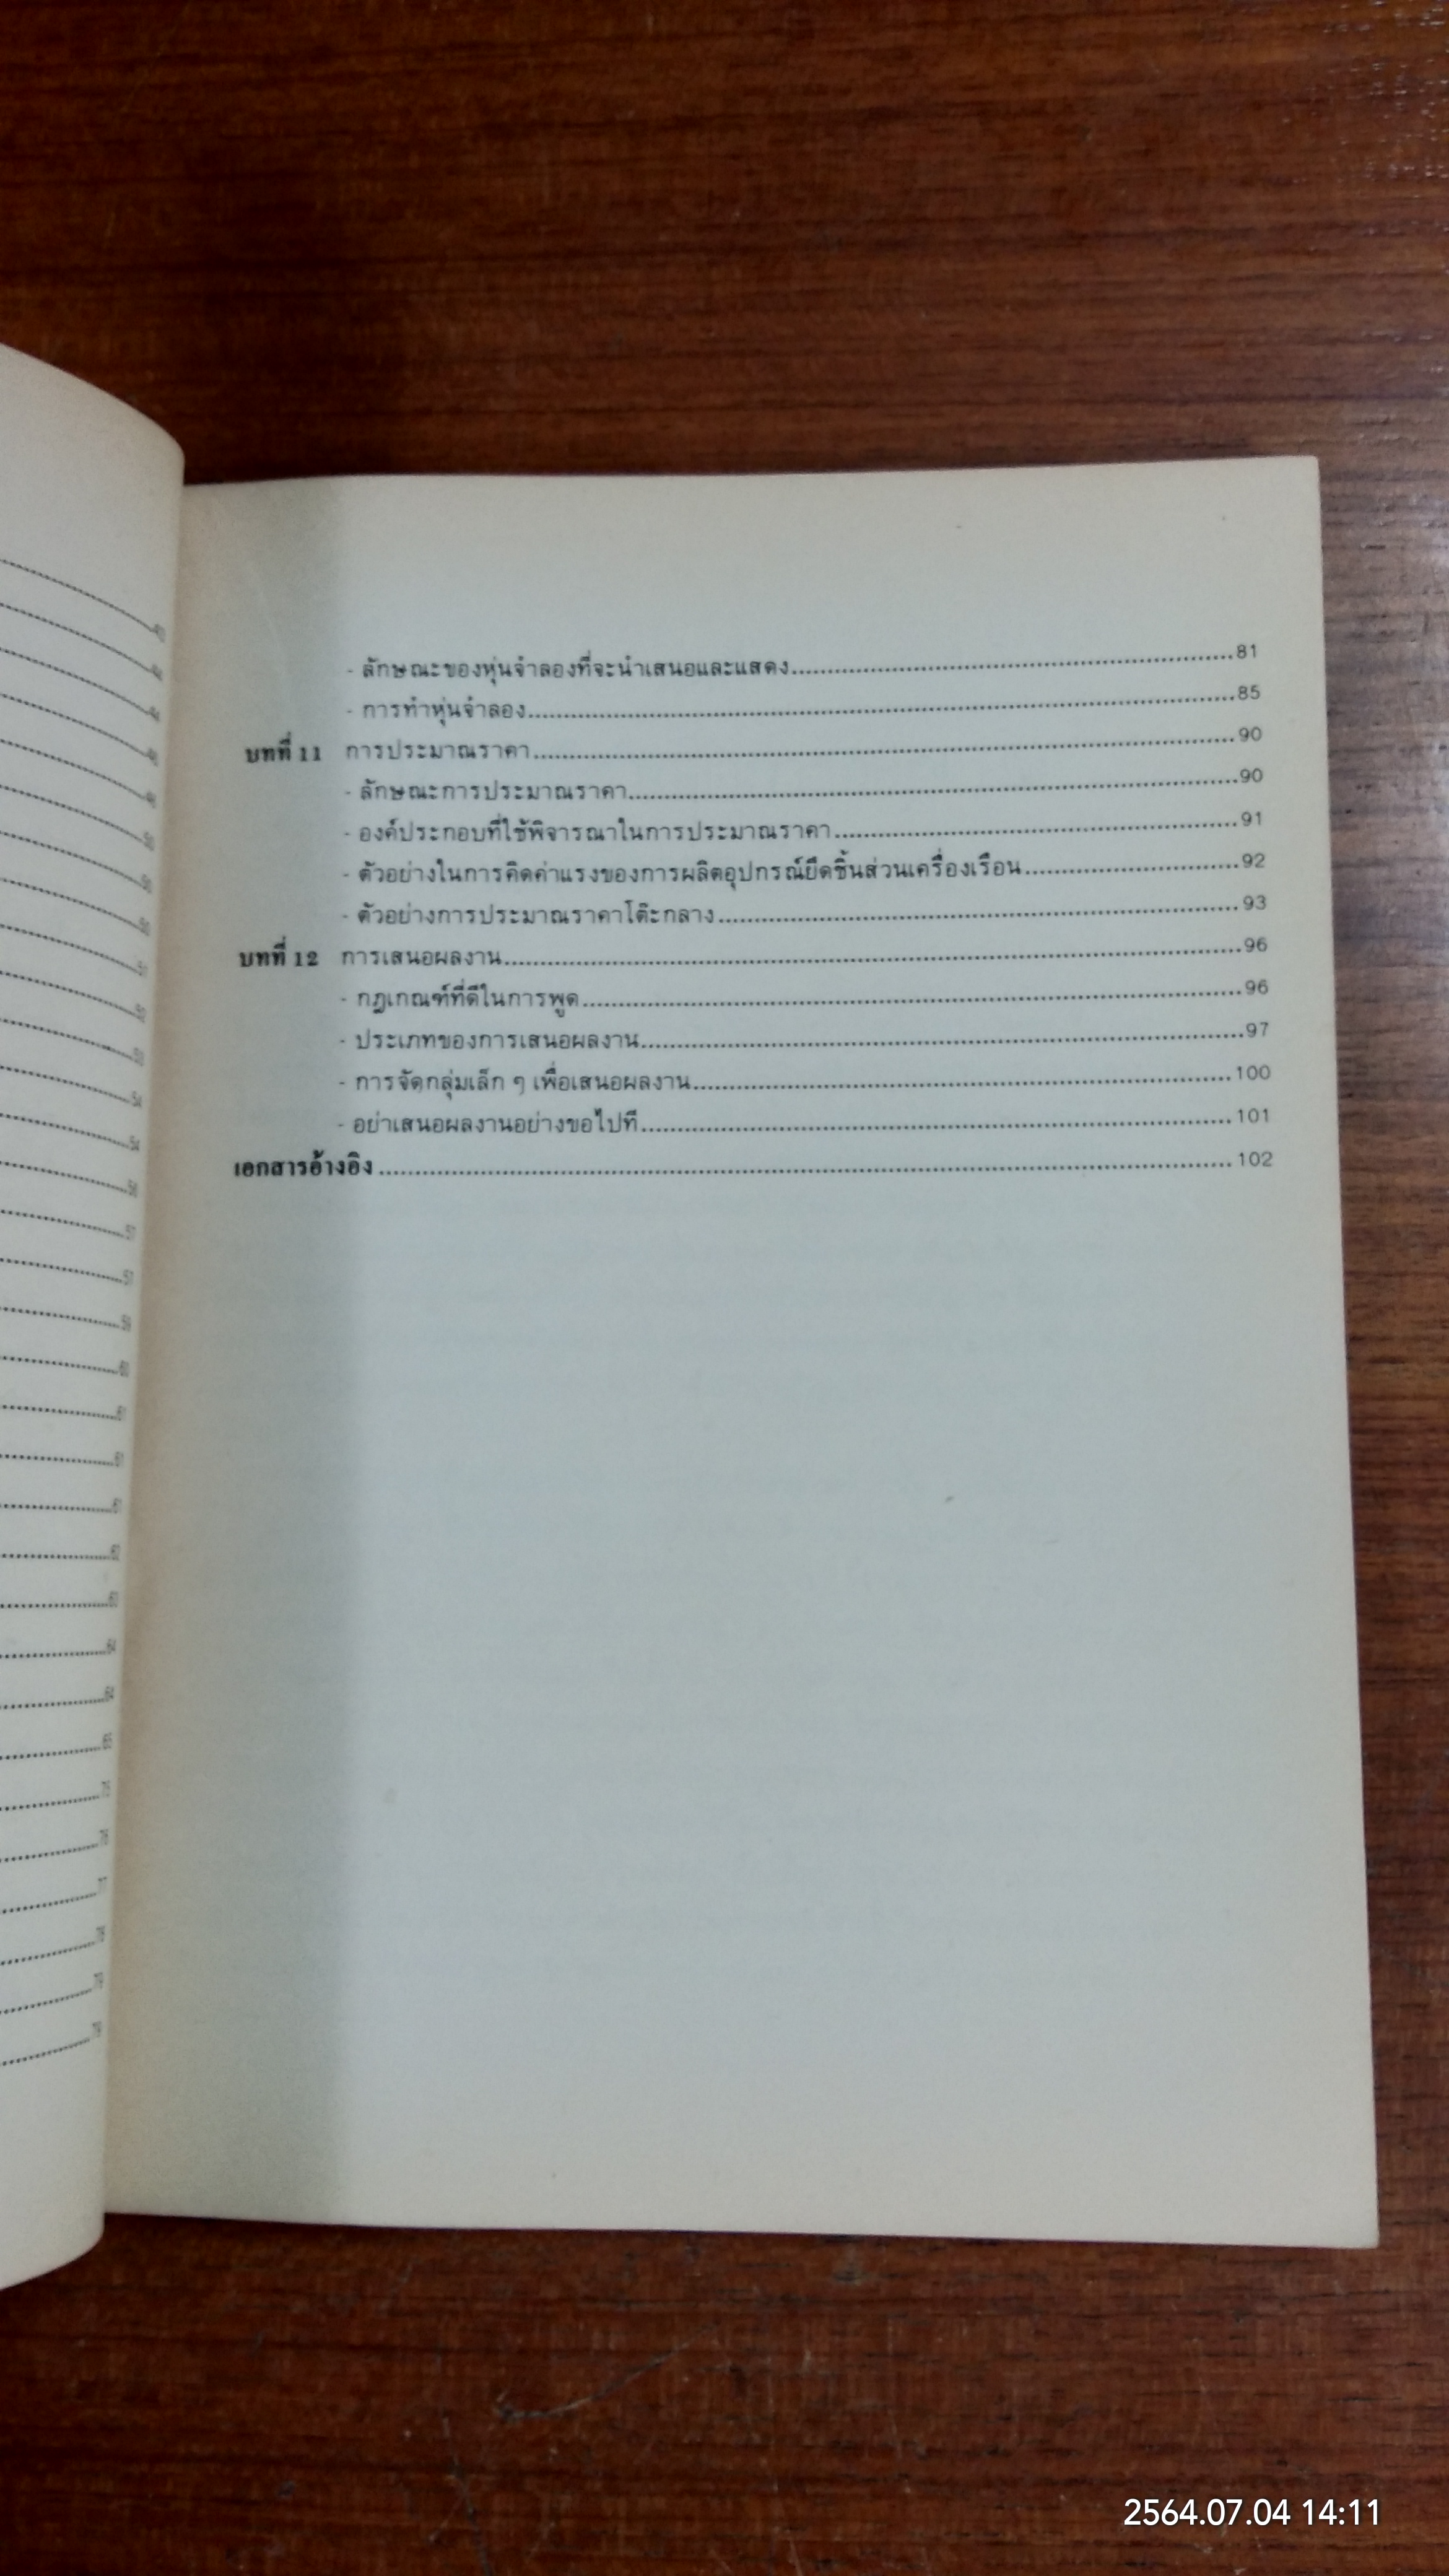 - ลักษณะของหุ่นจำลองที่จะนำเสนอและแสดง...........81
- การทำหุ่นจำลอง...........85
บทที่ 11 การประมาณราคา...........90
- ลักษณะการประมาณราคา...........90
- องค์ประกอบที่ใช้พิจารณาในการประมาณราคา...........91
- ตัวอย่างในการคิดค่าแรงของการผลิตอุปกรณ์ยึดชิ้นส่วนเครื่องเรือน...........92
- ตัวอย่างการประมาณราคาโต๊ะกลาง...........93
บทที่ 12 การเสนอผลงาน...........96
- กฎเกณฑ์ที่ดีในการพูด...........96
- ประเภทของการเสนอผลงาน...........97
- การจัดกลุ่มเล็ก ๆ เพื่อเสนอผลงาน...........100
- อย่าเสนอผลงานอย่างขอไปที...........101
เอกสารอ้างอิง...........102
2564.07.04 14:11